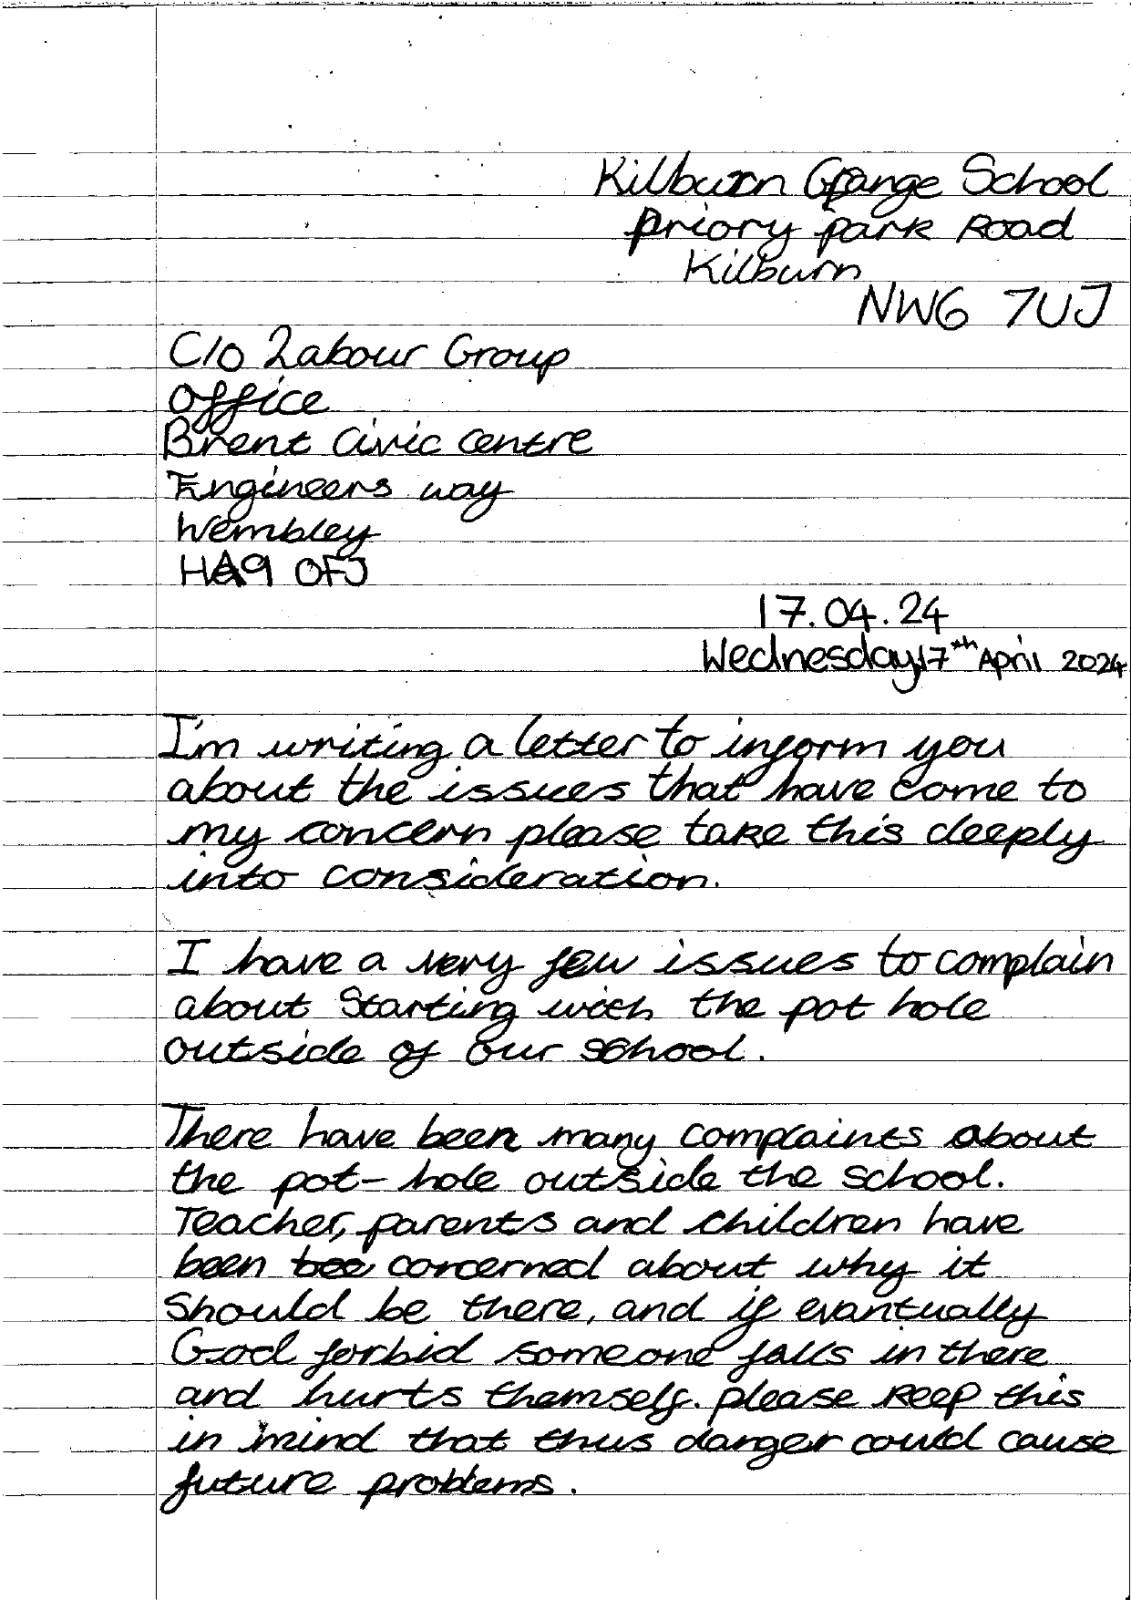 Kilburn Grange School
Priory park Road
Kilburn
NW6 7UJ
C/O Labour Group
Office
Brent Civic Centre
Engineers way
Wembley
HA9 0FJ
17.04.24
Wednesday 17th April 2024
I'm writing a letter to inform you
about the issues that have come to
my concern please take this deeply
into consideration.
I have a very few issues to complain
about Starting with the pot hole
outside of our school.
There have been many complaints about
the pot-hole outside the school.
Teacher, parents and children have
been bee concerned about why it
should be there, and if evantually
God forbid someone falls in there
and hurts themself. please keep this
in mind that thus danger could cause
future problems.